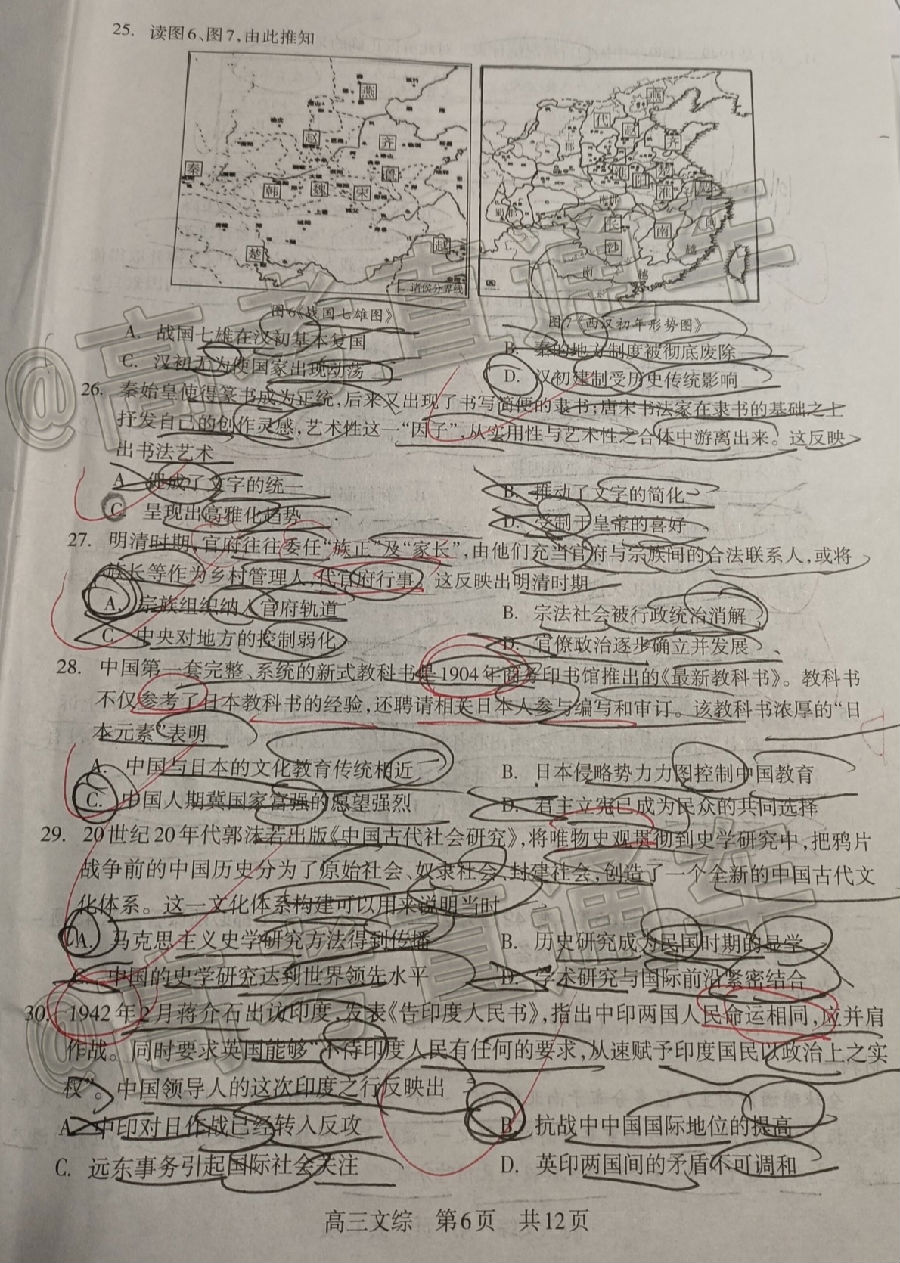 25. 读图6、图7,由此推知
燕
赵
齐
秦
韩
魏
宋
楚
越
诸侯分界线
燕
代
赵
齐
楚
淮
南
长
沙
图6《战国七雄图》
图7《西汉初年形势图》
A. 战国七雄在汉初基本复国
B. 秦的地方制度被彻底废除
C. 汉初无为使国家出现动荡
D. 汉初建制受历史传统影响
26. 秦始皇使得篆书成为正统,后来又出现了书写简便的隶书;唐宋书法家在隶书的基础之上
抒发自己的创作灵感,艺术性这一“因子”,从实用性与艺术性之合体中游离出来。这反映
出书法艺术
A. 促成了文字的统一
B. 推动了文字的简化
C. 呈现出高雅化趋势
D. 受制于皇帝的喜好
27. 明清时期,官府往往委任“族正”及“家长”,由他们充当官府与宗族间的合法联系人,或将
族长等作为乡村管理人,代官府行事。这反映出明清时期
A. 宗族组织纳入官府轨道
B. 宗法社会被行政统治消解
C. 中央对地方的控制弱化
D. 官僚政治逐步确立并发展
28. 中国第一套完整、系统的新式教科书是1904年商务印书馆推出的《最新教科书》。教科书
不仅参考了日本教科书的经验,还聘请相关日本人参与编写和审订。该教科书浓厚的“日
本元素”表明
A. 中国与日本的文化教育传统相近
B. 日本侵略势力力图控制中国教育
C. 中国人期冀国家富强的愿望强烈
D. 君主立宪已成为民众的共同选择
29. 20世纪20年代郭沫若出版《中国古代社会研究》,将唯物史观贯彻到史学研究中,把鸦片
战争前的中国历史分为了原始社会、奴隶社会、封建社会,创造了一个全新的中国古代文
化体系。这一文化体系构建可以用来说明当时
A. 马克思主义史学研究方法得到传播
B. 历史研究成为民国时期的显学
C. 中国的史学研究达到世界领先水平
D. 学术研究与国际前沿紧密结合
30. 1942年2月蒋介石出访印度,发表《告印度人民书》,指出中印两国人民命运相同,应并肩
作战。同时要求英国能够“不待印度人民有任何的要求,从速赋予印度国民以政治上之实
权”。中国领导人的这次印度之行反映出
A. 中印对日作战已经转入反攻
B. 抗战中中国国际地位的提高
C. 远东事务引起国际社会关注
D. 英印两国间的矛盾不可调和
高三文综 第6页 共12页
@高考直通车
@高考直通车